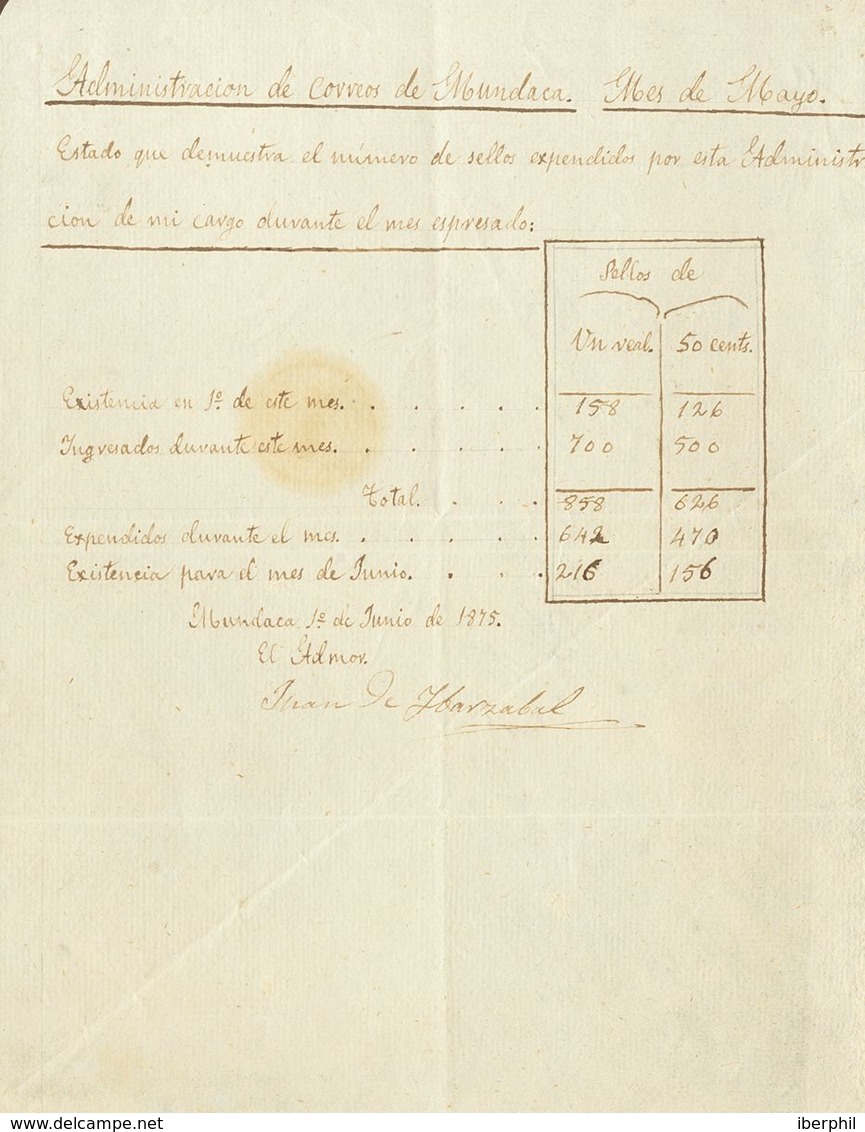 Administracion de Correos de Mundaca. Mes de Mayo.
Estado que demuestra el número de sellos expendidos por esta Administr
cion de mi cargo durante el mes espresado:
Sellos de
Un real. 50 cents.
Existencia en 1º de este mes. . . . . . 158 126
Ingresados durante este mes. . . . . . 700 500
Total. . . . 858 626
Expendidos durante el mes. . . . . . 642 470
Existencia para el mes de Junio. . . . 216 156
Mundaca 1º de Junio de 1875.
El Admor.
Juan de Ybarzabal
www.delcampe.net iberphil